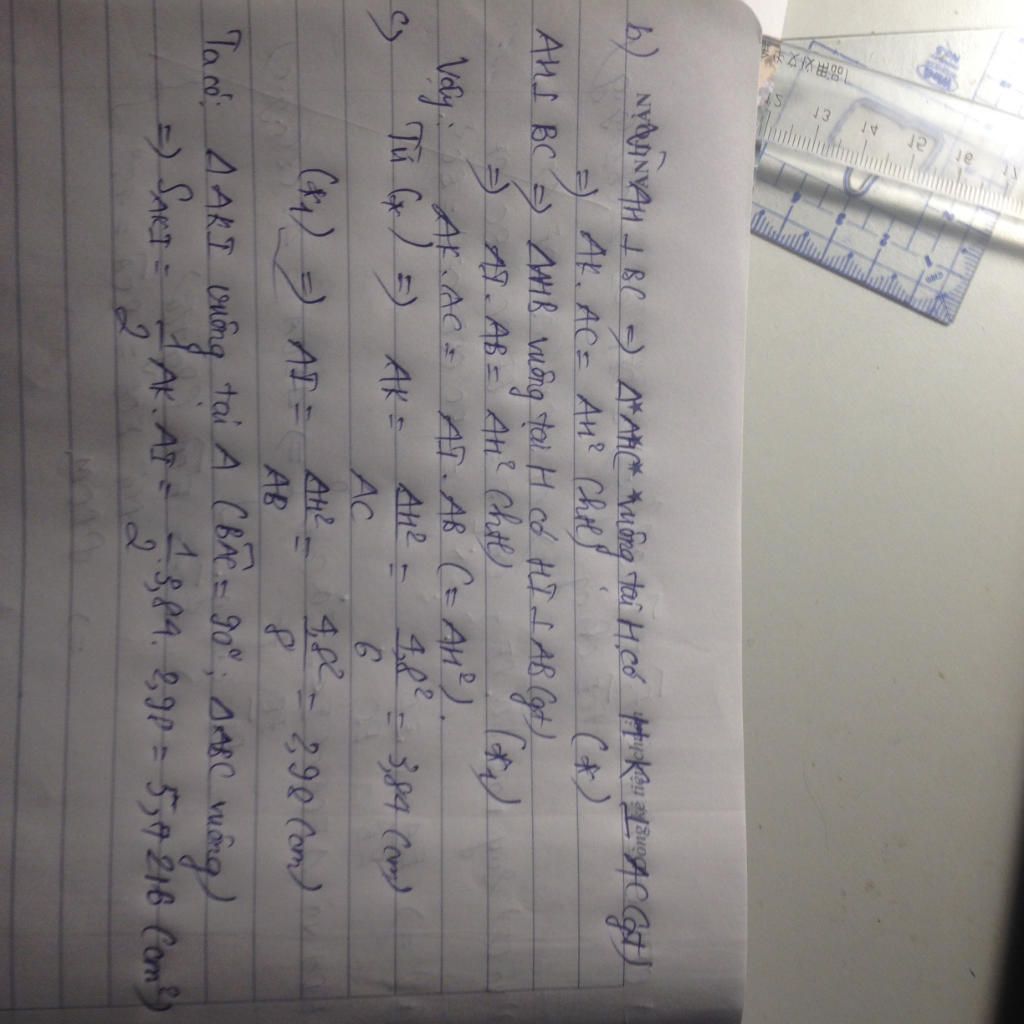 b) AH ⊥ BC => ΔAHC vuông tại H, có HK ⊥ AC (gt)
=> AK . AC = AH² (Chtl) (*)
AH ⊥ BC => ΔAHB vuông tại H có HI ⊥ AB (gt)
=> AI . AB = AH² (Chtl) (*1)
Vậy: AK . AC = AI . AB (= AH²).
c) Từ (*) => AK = AH²/AC = 4,8²/6 = 3,84 (cm)
(*1) => AI = AH²/AB = 4,8²/8 = 2,98 (cm)
Ta có: ΔAKI vuông tại A (BAC = 90°; ΔABC vuông)
=> SAKI = 1/2 AK . AI = 1/2 . 3,84 . 2,98 = 5,7216 (cm²)
12 13 14 15 16 17